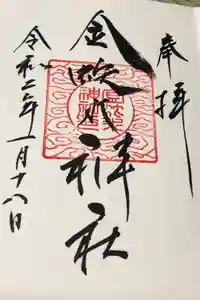 奉拝
金蛇水神社
令和二年一月十八日